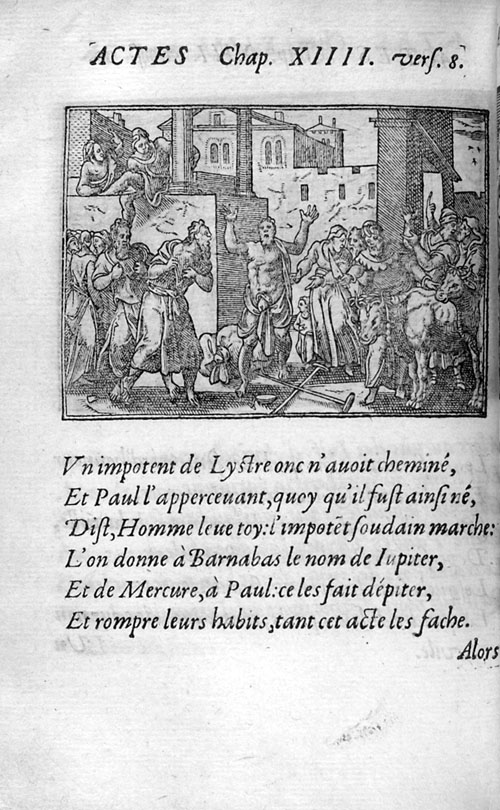 ACTES Chap. XIIII. verſ. 8.
Vn impotent de Lyſtre onc n'auoit cheminé,
Et Paul l'apperceuant, quoy qu'il fuſt ainſi né,
Diſt, Homme leue toy: l'impotẽt ſoudain marche:
L'on donne à Barnabas le nom de Iupiter,
Et de Mercure, à Paul: ce les fait dépiter,
Et rompre leurs habits, tant cet acte les fache.
Alors